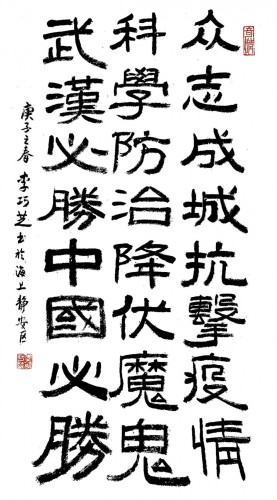 众志成城抗擊疫情
科學防治降伏魔鬼
武漢必勝中國必勝
庚子之春李巧芝书於海上静安區